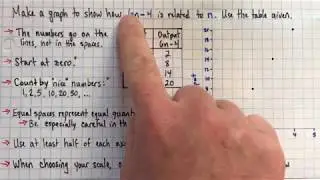 Make a graph to show how 6n-4 is related to n. Use the table given.
→ The numbers go on the lines, not in the spaces.
Output
(6n-4)
2
8
14
20
→ Start at zero.*
→ Count by "nice" numbers:
1, 2, 5, 10, 20, 50, ...
→ Equal spaces represent equal quant
→ Be especially careful in th
→ Use at least half of each ax
→ When choosing your scale, o